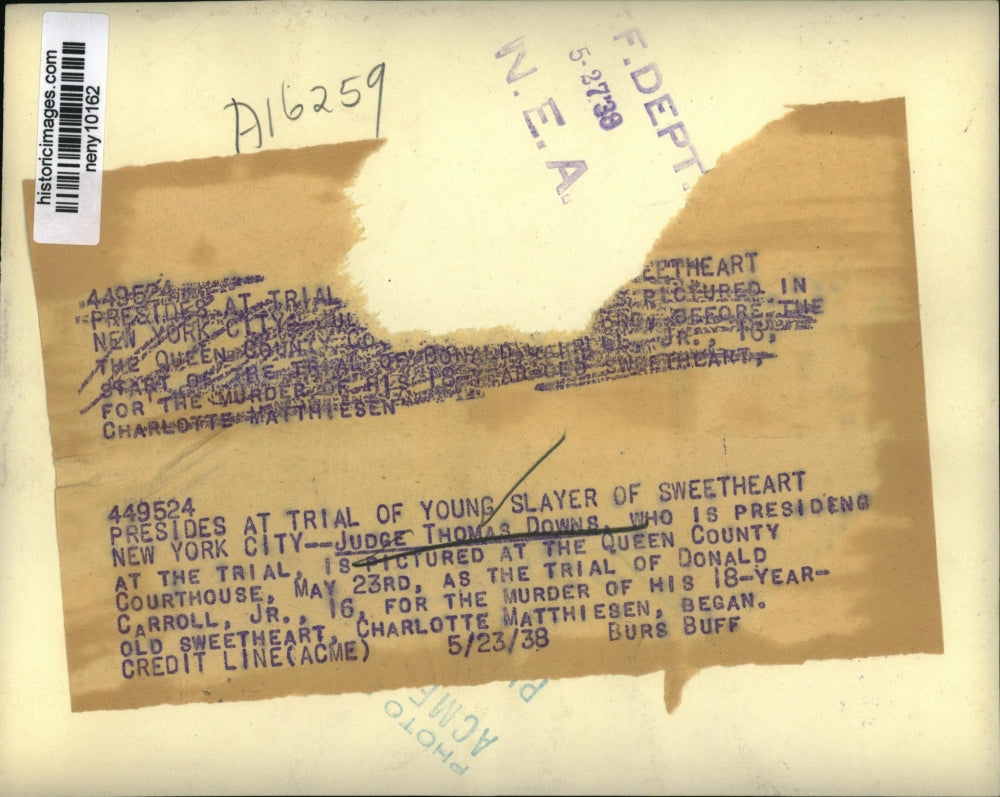 historicimages.com
neny10162
A16259
F.DEPT.
5-27'38
N.E.A.
449524
PRESIDES AT TRIAL EETHEART
NEW YORK CITY PICTURED IN
THE QUEEN COUNTY CO BEFORE THE
START OF THE TRIAL OF DONALD JR., 16,
FOR THE MURDER OF HIS SWEETHEART,
CHARLOTTE MATTHIESEN
449524
PRESIDES AT TRIAL OF YOUNG SLAYER OF SWEETHEART
NEW YORK CITY--JUDGE THOMAS DOWNS, WHO IS PRESIDENG
AT THE TRIAL, IS PICTURED AT THE QUEEN COUNTY
COURTHOUSE, MAY 23RD, AS THE TRIAL OF DONALD
CARROLL, JR., 16, FOR THE MURDER OF HIS 18-YEAR-
OLD SWEETHEART, CHARLOTTE MATTHIESEN, BEGAN.
CREDIT LINE(ACME) 5/23/38 BURS BUFF
PHOTO
ACME